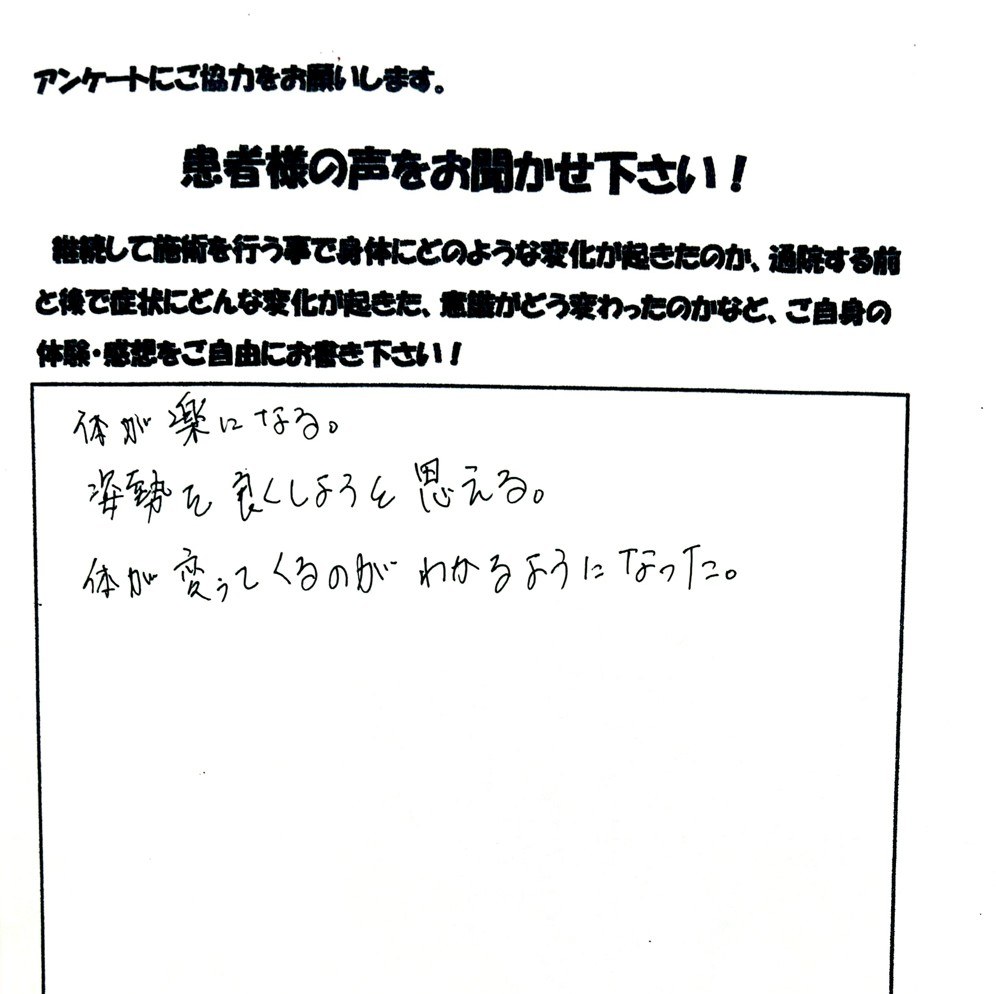 アンケートにご協力をお願いします。
患者様の声をお聞かせ下さい！
継続して施術を行う事で身体にどのような変化が起きたのか、通院する前
と後で症状にどんな変化が起きた、意識がどう変わったのかなど、ご自身の
体験・感想をご自由にお書き下さい！
体が楽になる。
姿勢を良くしようと思える。
体が変ってくるのがわかるようになった。